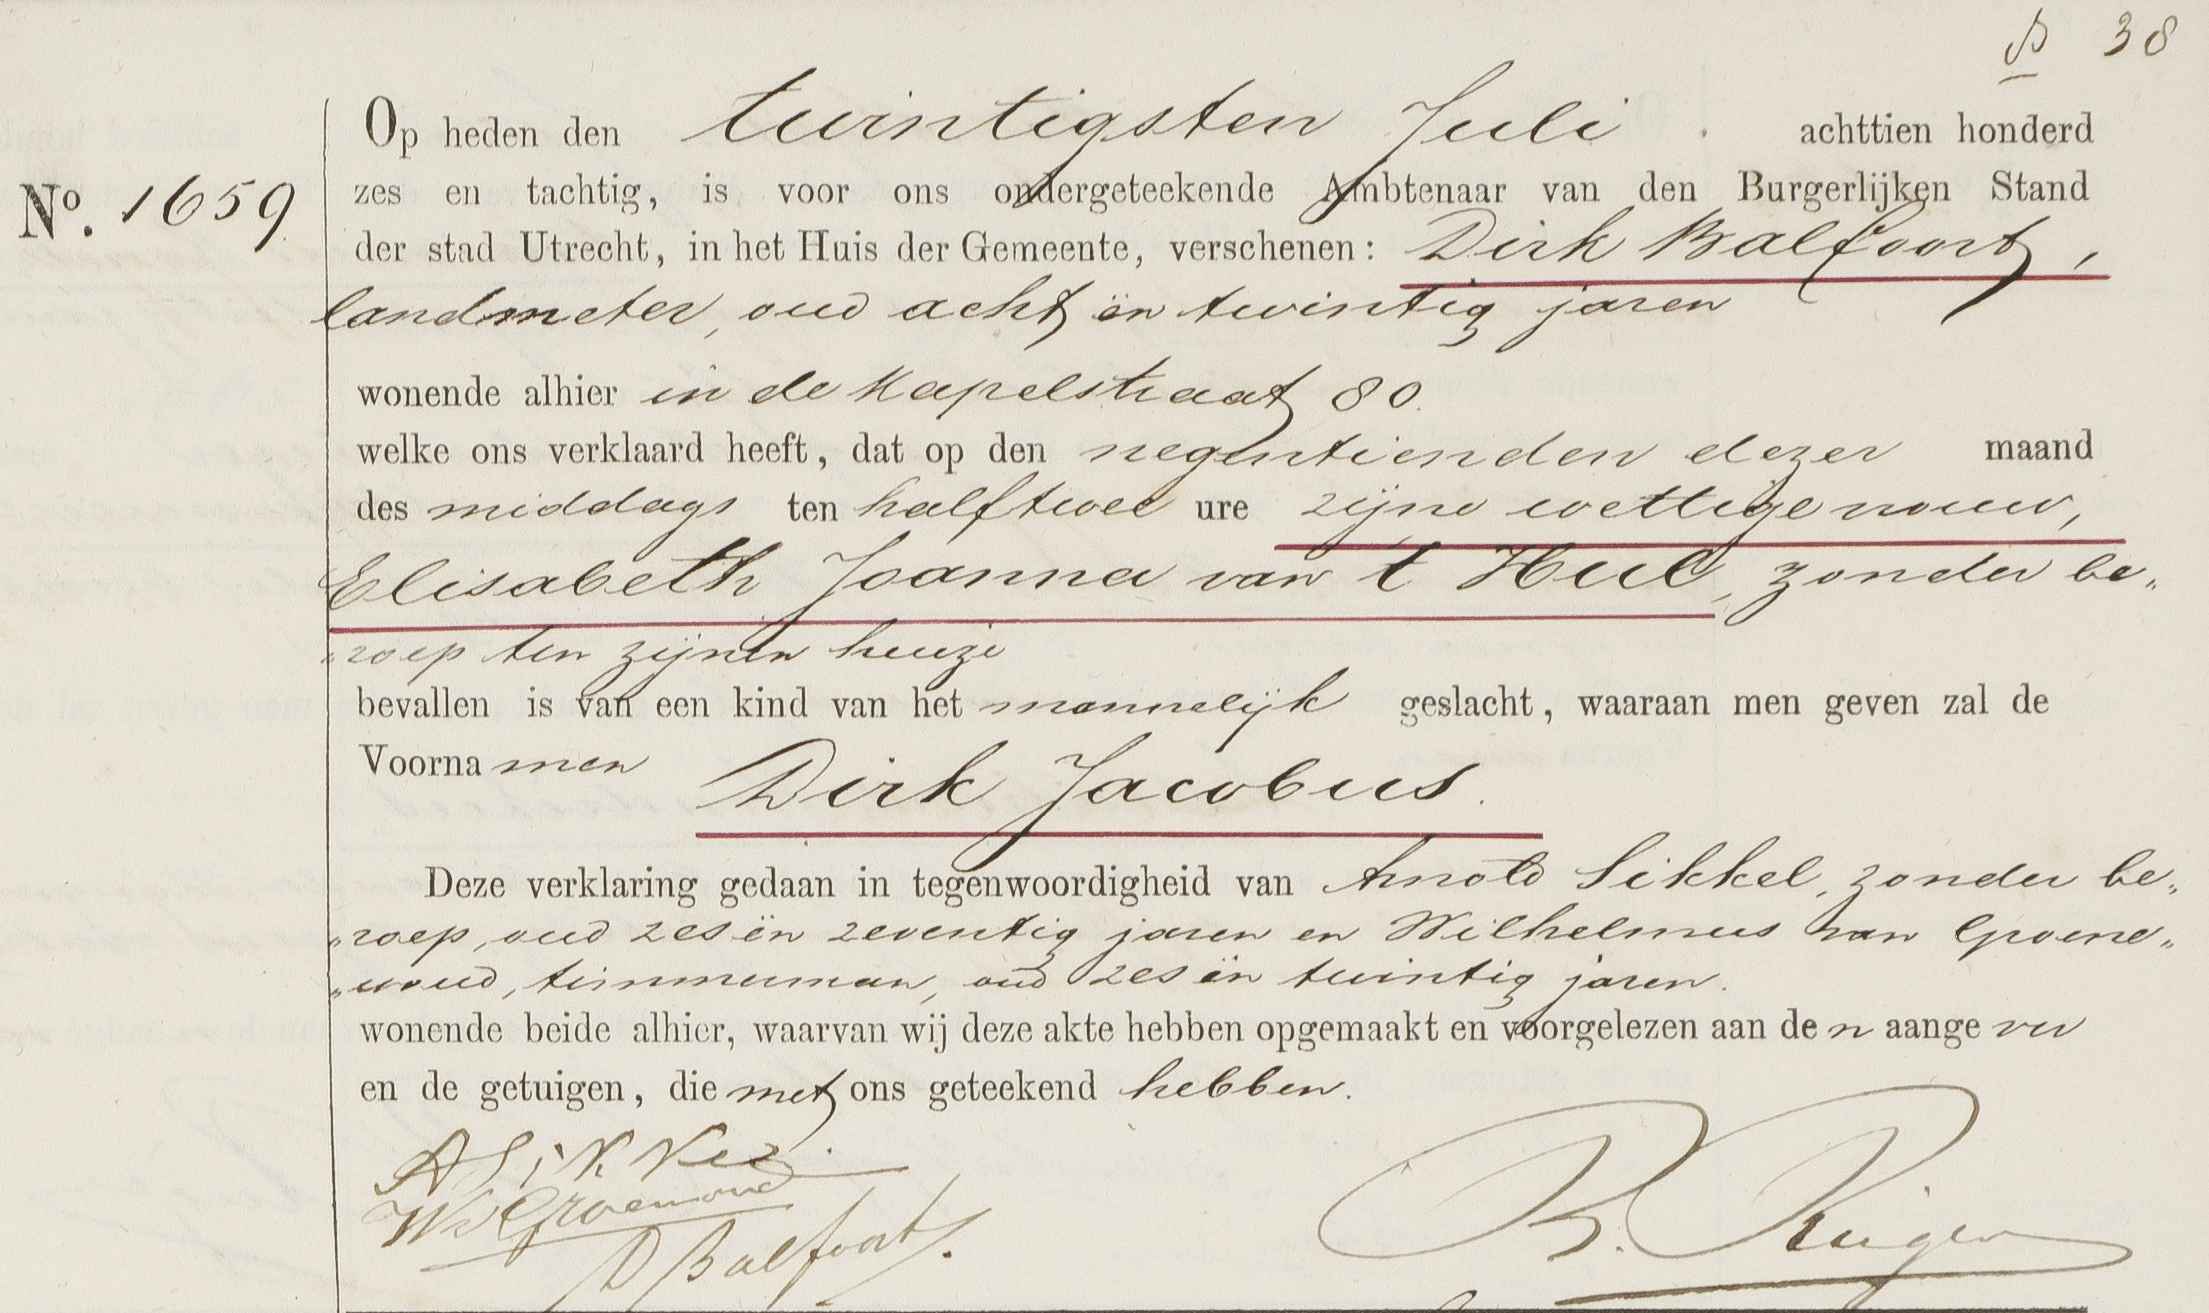 B 38
Op heden den twintigsten Juli . achttien honderd
No. 1659
zes en tachtig, is voor ons ondergeteekende Ambtenaar van den Burgerlijken Stand
der stad Utrecht, in het Huis der Gemeente, verschenen: Dirk Balfoort,
landmeter, oud acht ën twintig jaren
wonende alhier in de Kapelstraat 80.
welke ons verklaard heeft, dat op den negentienden dezer maand
des middags ten half twee ure zijne wettige vrouw,
Elisabeth Joanna van 't Hul, zonder be„
„roep ten zijnen huize
bevallen is van een kind van het mannelijk geslacht, waaraan men geven zal de
Voorna men Dirk Jacobus.
Deze verklaring gedaan in tegenwoordigheid van Arnold Sikkel, zonder be„
„roep, oud zes ën zeventig jaren en Wilhelmus van Groene„
„woud, timmerman, oud zes ën twintig jaren.
wonende beide alhier, waarvan wij deze akte hebben opgemaakt en voorgelezen aan de n aange ver
en de getuigen, die met ons geteekend hebben.
A Sikkel.
W v Groenewoud
D Balfoort.